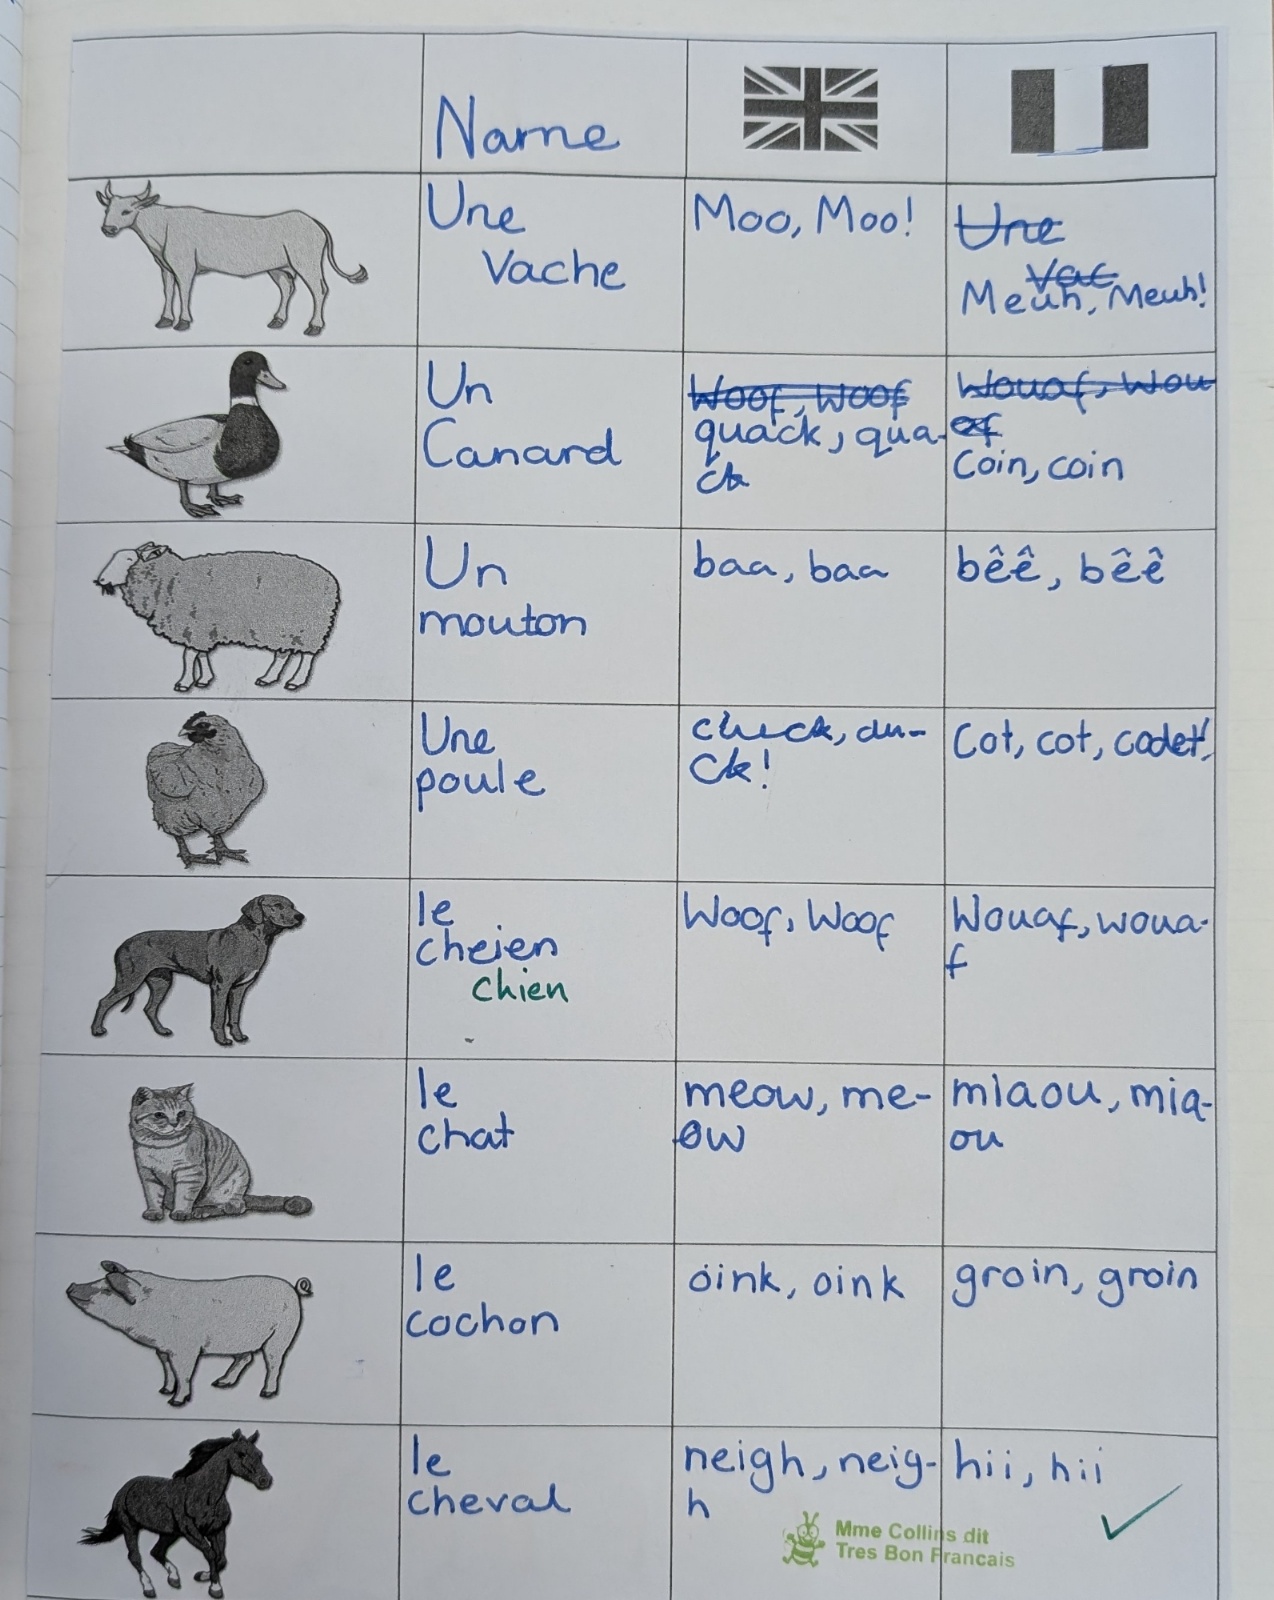 Name
Une
Vache
Moo, Moo!
Une
Vac
Meuh, Meuh!
Un
Canard
Woof, Woof
quack, qua-
ck
Wouaf, Wou
af
Coin, coin
Un
mouton
baa, baa
bêê, bêê
Une
poule
cluck, clu-
ck!
Cot, cot, codet,
le
cheien
chien
Woof, Woof
Wouaf, woua-
f
le
chat
meow, me-
ow
miaou, mia-
ou
le
cochon
oink, oink
groin, groin
le
cheval
neigh, neig-
h
hii, hii
Mme Collins dit
Tres Bon Francais